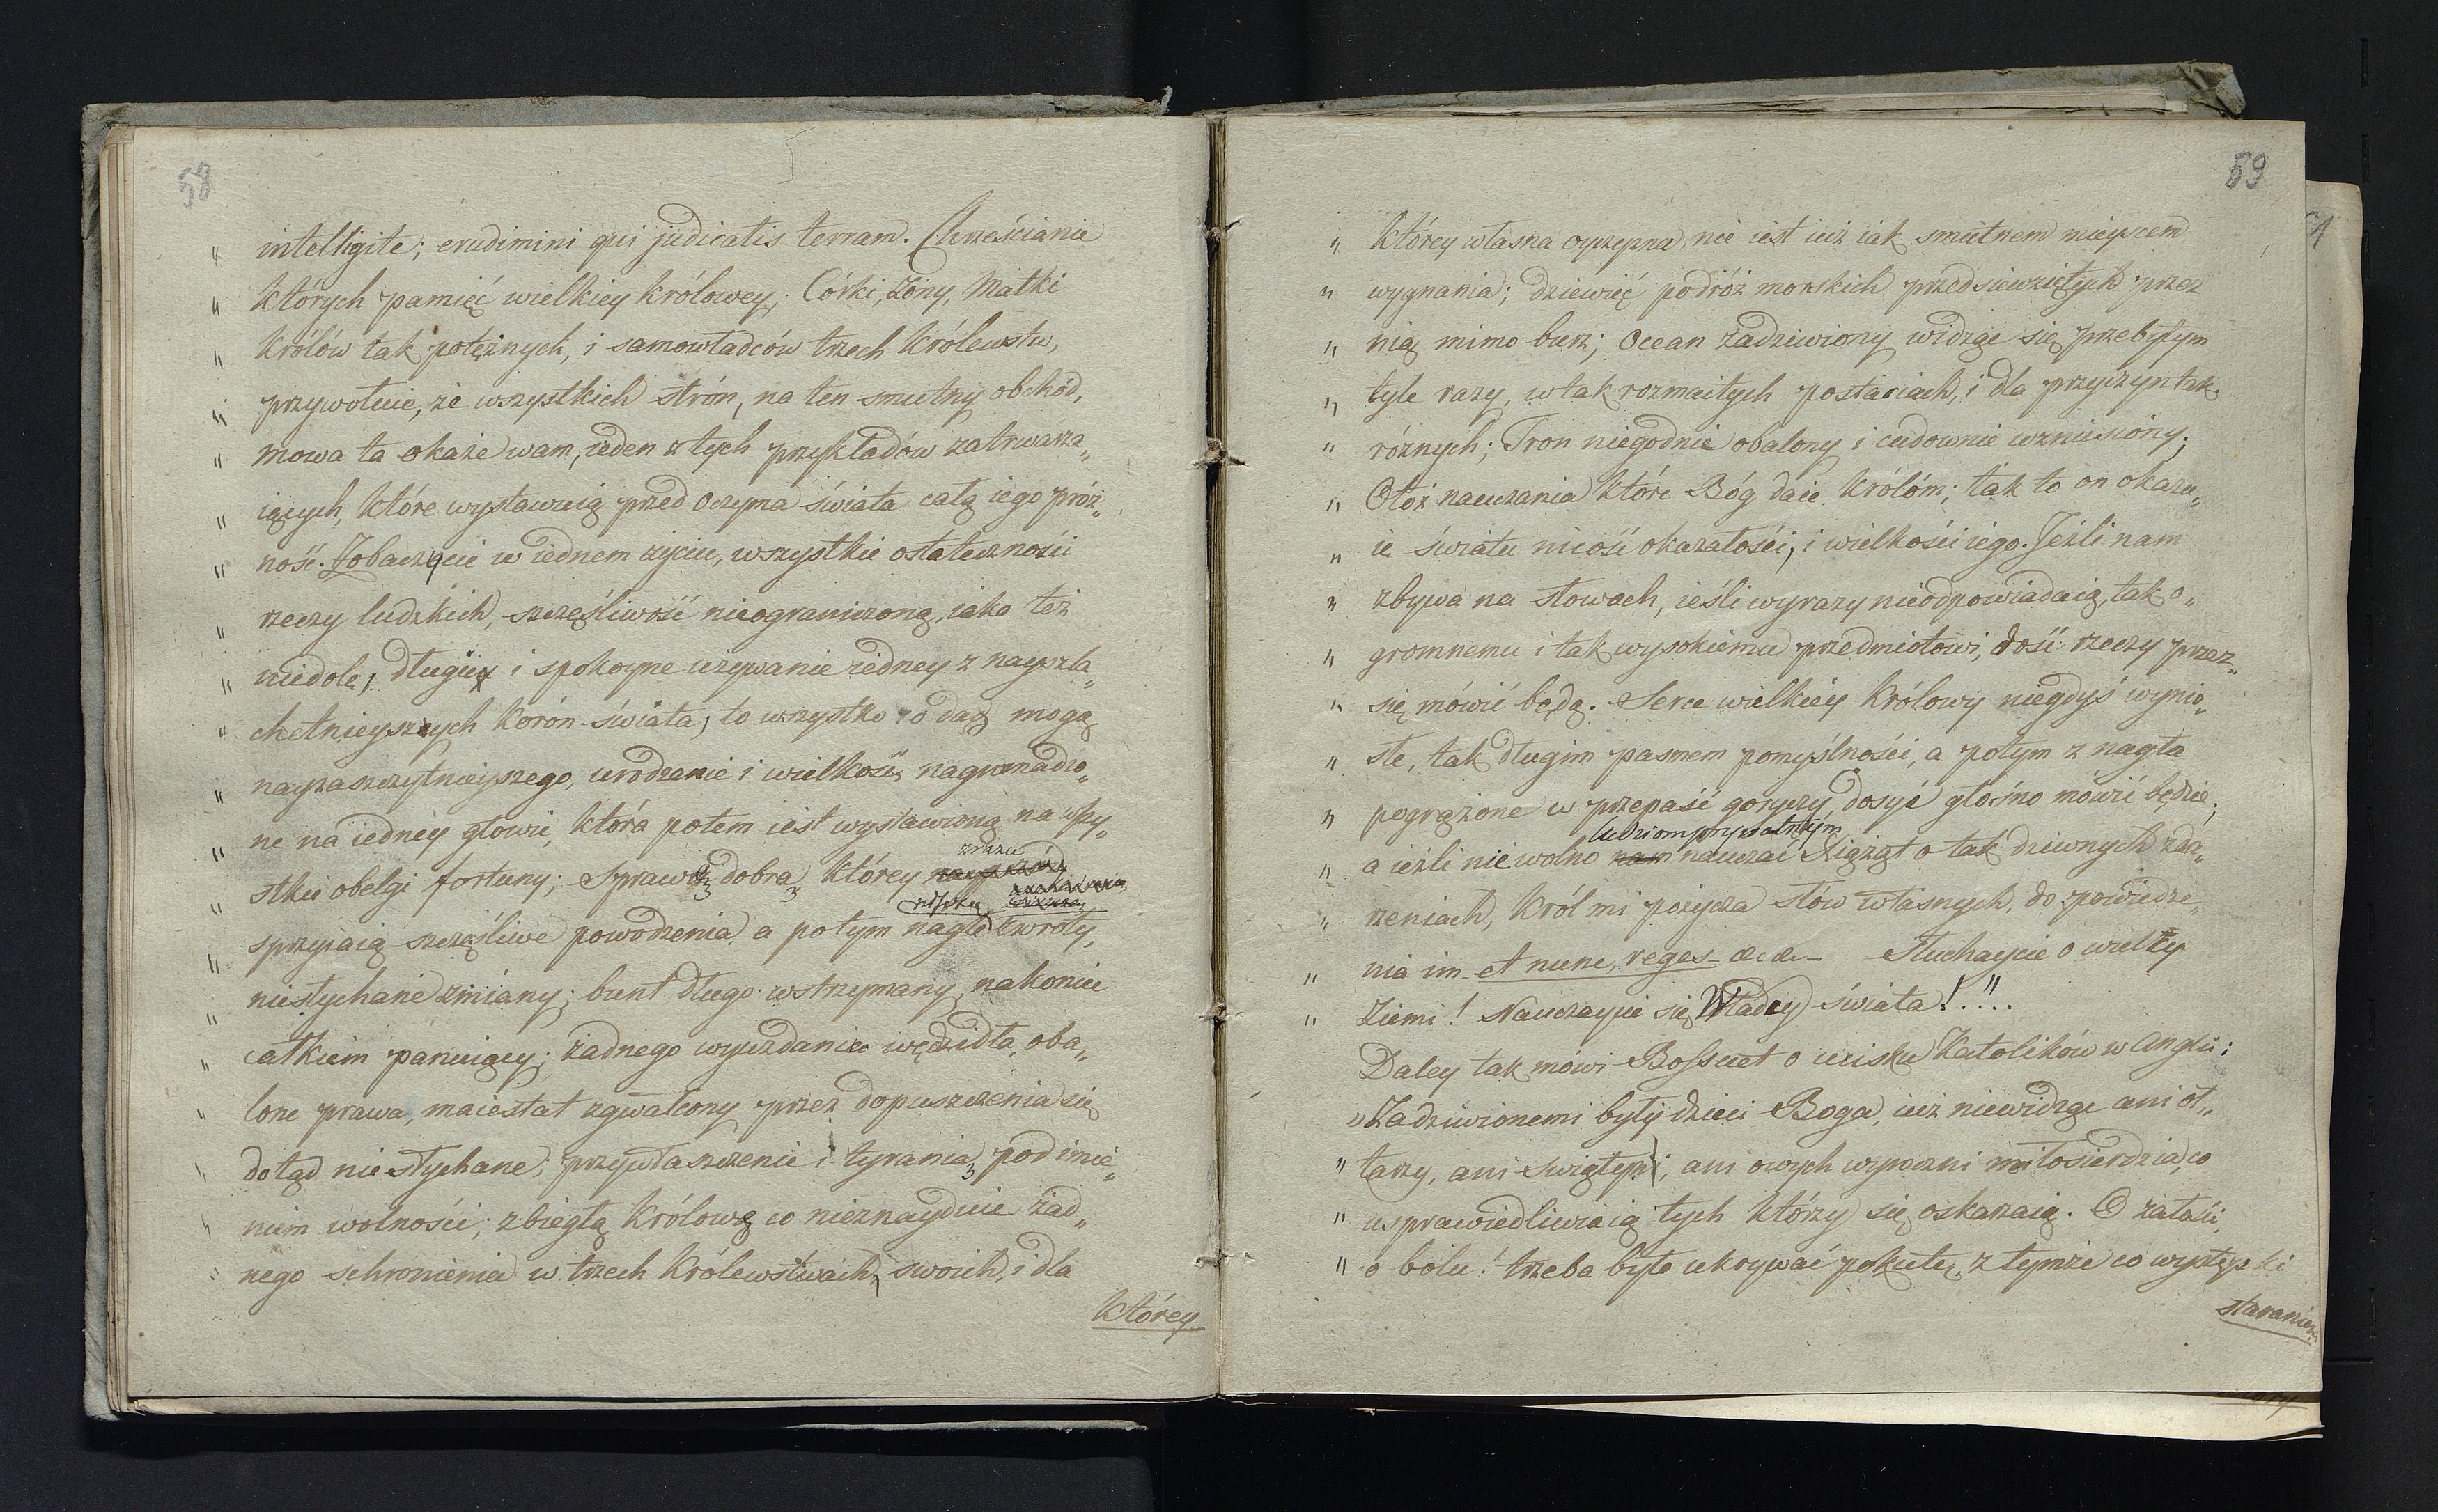 58
„ intelligite; erudimini qui judicatis terram. Chrześcianie
„ których pamięć wielkiey królowey, Córki, żony, Matki
„ królów tak potężnych, i samowładców trzech Królewstw,
„ przywołuie, ze wszystkich strón, na ten smutny obchód,
„ mowa ta okaże wam, ieden z tych przykładów zatrważa„
„ iących, które wystawuią przed oczyma świata całą iego próż„
„ ność. Zobaczycie w iednem życiu, wszystkie ostateczności
„ rzeczy ludzkich, szczęśliwość nieograniczoną, iako też
„ niedolę, długie i spokoyne używanie iedney z nayszla„
„ chetnieyszych korón świata, to wszystko co dać mogą
„ nayzaszczytnieyszego, urodzenie i wielkość, nagromadzo„
„ ne na iedney głowie, która potem iest wystawioną na wszy„
„ stkie obelgi fortuny; Sprawę dobrą, którey zrazu
„ sprzyiaią szczęśliwe powodzenia, a potym nagłe zwroty,
„ niesłychane zmiany; bunt długo wstrzymany, nakoniec
„ całkiem panuiący; żadnego wyuzdaniu wędzidła, oba„
„ lone prawa, maiestat zgwałcony przez dopuszczenia się
„ dotąd nie słychane; przywłaszczenie i tyrania, pod imie„
„ niem wolności; zbiegłą królowę co nieznayduie żad„
„ nego schronienia w trzech Królewstwach, swoich, i dla
którey
59
„ którey własna oyczyzna, nie iest iuż iak smutnem mieyscem
„ wygnania; dziewięć podróż morskich przedsiewziętych przez
„ nią mimo burz; Ocean zadziwiony widząc się przebytym
„ tyle razy, w tak rozmaitych postaciach, i dla przyczyn tak
„ różnych; Tron niegodnie obalony i cudownie wzniesiony;
„ Otoż nauczania które Bóg daie Królóm; tak to on okazu„
„ ie światu nicość okazałości, i wielkości iego. Jeżli nam
„ zbywa na słowach, ieśli wyrazy nieodpowiadaią, tak o„
„ gromnemu i tak wysokiemu przedmiotowi, dość rzeczy przez„
„ się mówić będą. Serce wielkiey Królowy niegdyś wynio„
„ słe, tak długim pasmem pomyślności, a potym z nagła
„ pogrążone w przepaść goryczy dosyć głośno mówić będzie;
ludziom prywatnym
„ a ieżli nie wolno nam nauczać Xiążąt o tak dziwnych zda„
„ rzeniach, Król mi pożycza słów własnych, do powiedze„
„ nia im et nunc, reges &c &c Słuchaycie o wielcy
„ Ziemi! Nauczaycie się Władcy świata!...
Daley tak mówi Bossuet o ucisku Katolików w Anglii:
„ Zadziwionemi były dzieci Boga, iuż niewidząc ani oł„
„ tarzy, ani świątyń, ani owych wyroczni miłosierdzia, co
„ usprawiedliwiaią tych którzy się oskarżaią. O żałości,
„ o bólu! trzeba było ukrywać pokutę, z tymże co występki
staraniem